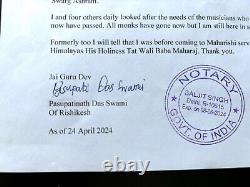 Swarg Ashram.
I and four others daily looked after the needs of the musicians who
passed away. All monks have gone now but I am still here in s
Formerly too I will tell that I was before coming to Maharishi serv
Himalayas His Holiness Tat Wali Baba Maharaj. Thank you.
Jai Guru Dev
Pasupati Das Swami
Pasupatinath Das Swami
Of Rishikesh
As of 24 April 2024
NOTARY
BALJIT SINGH
Delhi
GOVT. OF INDIA